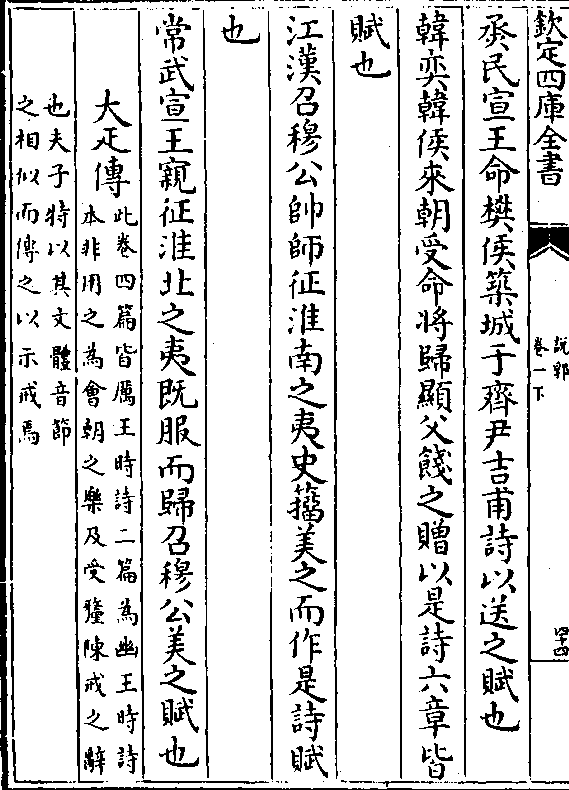 欽定四庫全書
說郛
卷一下
四十四
烝民宣王命樊侯築城于齊尹吉甫詩以送之賦也
韓奕韓侯來朝受命將歸顯父餞之贈以是詩六章皆
賦也
江漢召穆公帥師征淮南之夷史籀美之而作是詩賦
也
常武宣王親征淮北之夷既服而歸召穆公美之賦也
大疋傳
此卷四篇皆厲王時詩二篇為幽王時詩
本非用之為會朝之樂及受釐陳戒之辭
也夫子特以其文體音節
之相似而傳之以示戒焉